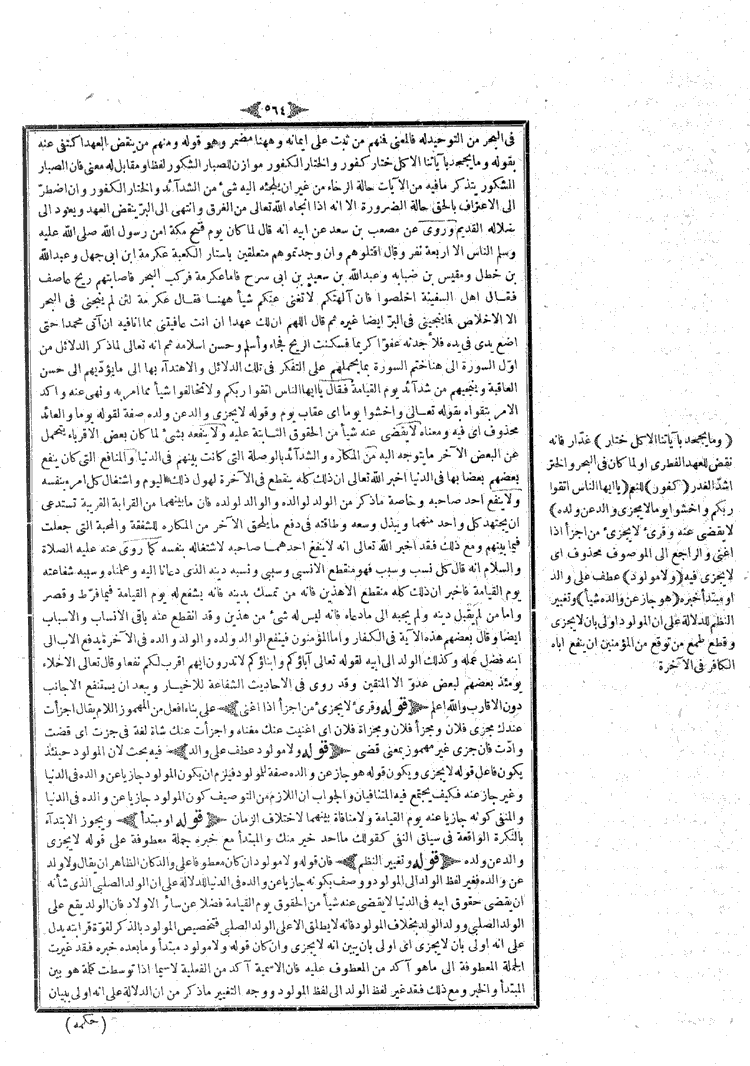 ٥٦٤
فى البحر من التوحيد له فالمعنى فنهم من ثبت على ايمانه وههنا مضمر وهو قوله ومنهم من ينقض العهد اكتفى عنه
بقوله وما يجحد بآياتنا الا كل ختار كفور والختار الكفور موازن للصبار الشكور لفظا ومقابل له معنى فان الصبار
الشكور يتذكر مافيه من الآيات حالة الرخاء من غير ان يلجئه اليه شئ من الشدآئد والختار الكفور وان اضطرّ
الى الاعتراف بالحق حالة الضرورة الا انه اذا انجاه الله تعالى من الغرق وانتهى الى البرّ ينقض العهد ويعود الى
ضلاله القديم وروى عن مصعب بن سعد عن ابيه انه قال لما كان يوم فتح مكة امن رسول الله صلى الله عليه
وسلم الناس الا اربعة نفر وقال اقتلوهم وان وجدتموهم متعلقين باستار الكعبة عكرمة ابن ابى جهل وعبدالله
بن خطل ومقيس بن ضبابه وعبدالله بن سعيد بن ابى سرح فاما عكرمة فركب البحر فاصابتهم ريح عاصف
فقال اهل السفينة اخلصوا فان آلهتكم لاتغنى عنكم شيأ ههنا فقال عكرمة لئن لم ينجنى فى البحر
الا الاخلاص فما ينجينى فى البرّ ايضا غيره ثم قال اللهم ان لك عهدا ان انت عافيتنى مما انافيه ان آتى محمدا حتى
اضع يدى فى يده فلأجدنه عفوّا كريما فسكنت الريح فجاء وأسلم وحسن اسلامه ثم انه تعالى لما ذكر الدلائل من
اوّل السورة الى هنا ختم السورة بما يحملهم على التفكر فى تلك الدلائل والاهتدآء بها الى مايؤدّيهم الى حسن
العاقبة وينجيهم من شدآئد يوم القيامة فقال ياايها الناس اتقوا ربكم ولاتخالفوا شيأ مما امر به ونهى عنه واكد
الامر بتقواه بقوله تعالى واخشوا يوما اى عقاب يوم وقوله لايجزى والد عن ولده صفة لقوله يوما والعائد
محذوف اى فيه ومعناه لايقضى عنه شيأ من الحقوق الثابتة عليه ولاينفعه بشئ لما كان بعض الاقرباء يتحمل
عن البعض الآخر مايتوجه اليه من المكاره والشدآئد بالوصلة التى كانت بينهم فى الدنيا والمنافع التى كان ينفع
بعضهم بعضا بها فى الدنيا اخبر الله تعالى ان ذلك كله ينقطع فى الآخرة لهول ذلك اليوم واشتغال كل امرء بنفسه
ولاينفع احد صاحبه وخاصة ماذكر من الولد لوالده والوالد لولده فان ما بينهما من القرابة القريبة تستدعى
ان يجتهد كل واحد منهما ويبذل وسعه وطاقته فى دفع مايلحق الآخر من المكاره للشفقة والمحبة التى جعلت
فيما بينهم ومع ذلك فقد اخبر الله تعالى انه لاينفع احدهما صاحبه لاشتغاله بنفسه كما روى عنه عليه الصلاة
والسلام انه قال كل نسب وسبب فهو منقطع الانسبى وسببى ونسبه دينه الذى دعانا اليه وعملناه وسببه شفاعته
يوم القيامة فاخبر ان ذلك كله منقطع الاهذين فانه من تمسك بدينه فانه يشفع له يوم القيامة فيما فرّط وقصر
واما من لم يقبل دينه ولم يجبه الى مادعاه فانه ليس له شئ من هذين وقد انقطع عنه باقى الانساب والاسباب
ايضا وقال بعضهم هذه الآية فى الكفار واما المؤمنون فينفع الوالد ولده والولد والده فى الآخرة يدفع الاب الى
ابنه فضل عمله وكذلك الولد الى ابيه لقوله تعالى آباؤكم وابناؤكم لاتدرون ايهم اقرب لكم نفعا وقال تعالى الاخلاء
يومئذ بعضهم لبعض عدوّ الا المتقين وقد روى فى الاحاديث الشفاعة للاخيار وبعد ان يستنفع الاجانب
دون الاقارب والله اعلم (قوله وقرئ لايجزئ من اجزأ اذا اغنى) على بناء افعل من المهموز اللام يقال اجزأت
عندك مجزى فلان ومجزأ فلان ومجزاة فلان اى اغنيت عنك مغناه واجزأت عنك شاة لغة فى جزت اى قضت
وادّت فان جزى غير مهموز بمعنى قضى (قوله ولامولود عطف على والد) فيه بحث لان المولود حينئذ
يكون فاعل قوله لايجزى ويكون قوله هو جاز عن والده صفة لمولود فيلزم ان يكون المولود جازيا عن والده فى الدنيا
وغير جاز عنه فكيف يجتمع فيه المتنافيان والجواب ان اللازم من التوصيف كون المولود جازيا عن والده فى الدنيا
والمنفى كونه جازيا عنه يوم القيامة ولامنافاة بينهما لاختلاف الزمان (قوله او مبتدأ) ويجوز الابتدآء
بالنكرة الواقعة فى سياق النفى كقولك مااحد خير منك والمبتدأ مع خبره جملة معطوفة على قوله لايجزى
والد عن ولده (قوله وتغيير النظم) فان قوله ولامولود ان كان معطوفا على والد كان الظاهر ان يقال ولاولد
عن والده فغير لفظ الولد الى المولود ووصف بكونه جازيا عن والده فى الدنيا للدلالة على ان الولد الصلبىّ الذى شأنه
ان يقضى حقوق ابيه فى الدنيا لايقضى عنه شيأ من الحقوق يوم القيامة فضلا عن سائر الاولاد فان الولد يقع على
الولد الصلبى وولد الولد بخلاف المولود فانه لايطلق الا على الولد الصلبى فتخصيص المولود بالذكر لقوة قرابته يدل
على انه اولى بان لايجزى اى اولى بان يبين انه لايجزى وان كان قوله ولامولود مبتدأ ومابعده خبره فقد غيرت
الجملة المعطوفة الى ماهو آكد من المعطوف عليه فان الاسمية آكد من الفعلية لاسيما اذا توسطت كلمة هو بين
المبتدأ والخبر ومع ذلك فقد غير لفظ الولد الى لفظ المولود ووجه التغيير ماذكر من ان الدلالة على انه اولى ببيان
(حكمه)
(وما يجحد بآياتنا الا كل ختار) غدّار فانه
نقض للعهد الفطرى او لما كان فى البحر والختر
اشدّ الغدر (كفور) للنعم (ياايها الناس اتقوا
ربكم واخشوا يوما لايجزى والد عن ولده)
لايقضى عنه وقرئ لايجزئ من اجزأ اذا
اغنى والراجع الى الموصوف محذوف اى
لايجزى فيه (ولامولود) عطف على والد
او مبتدأ خبره (هو جاز عن والده شيأ) وتغيير
النظم للدلالة على ان المولود اولى بان لايجزى
وقطع طمع من توقع من المؤمنين ان ينفع اباه
الكافر فى الآخرة